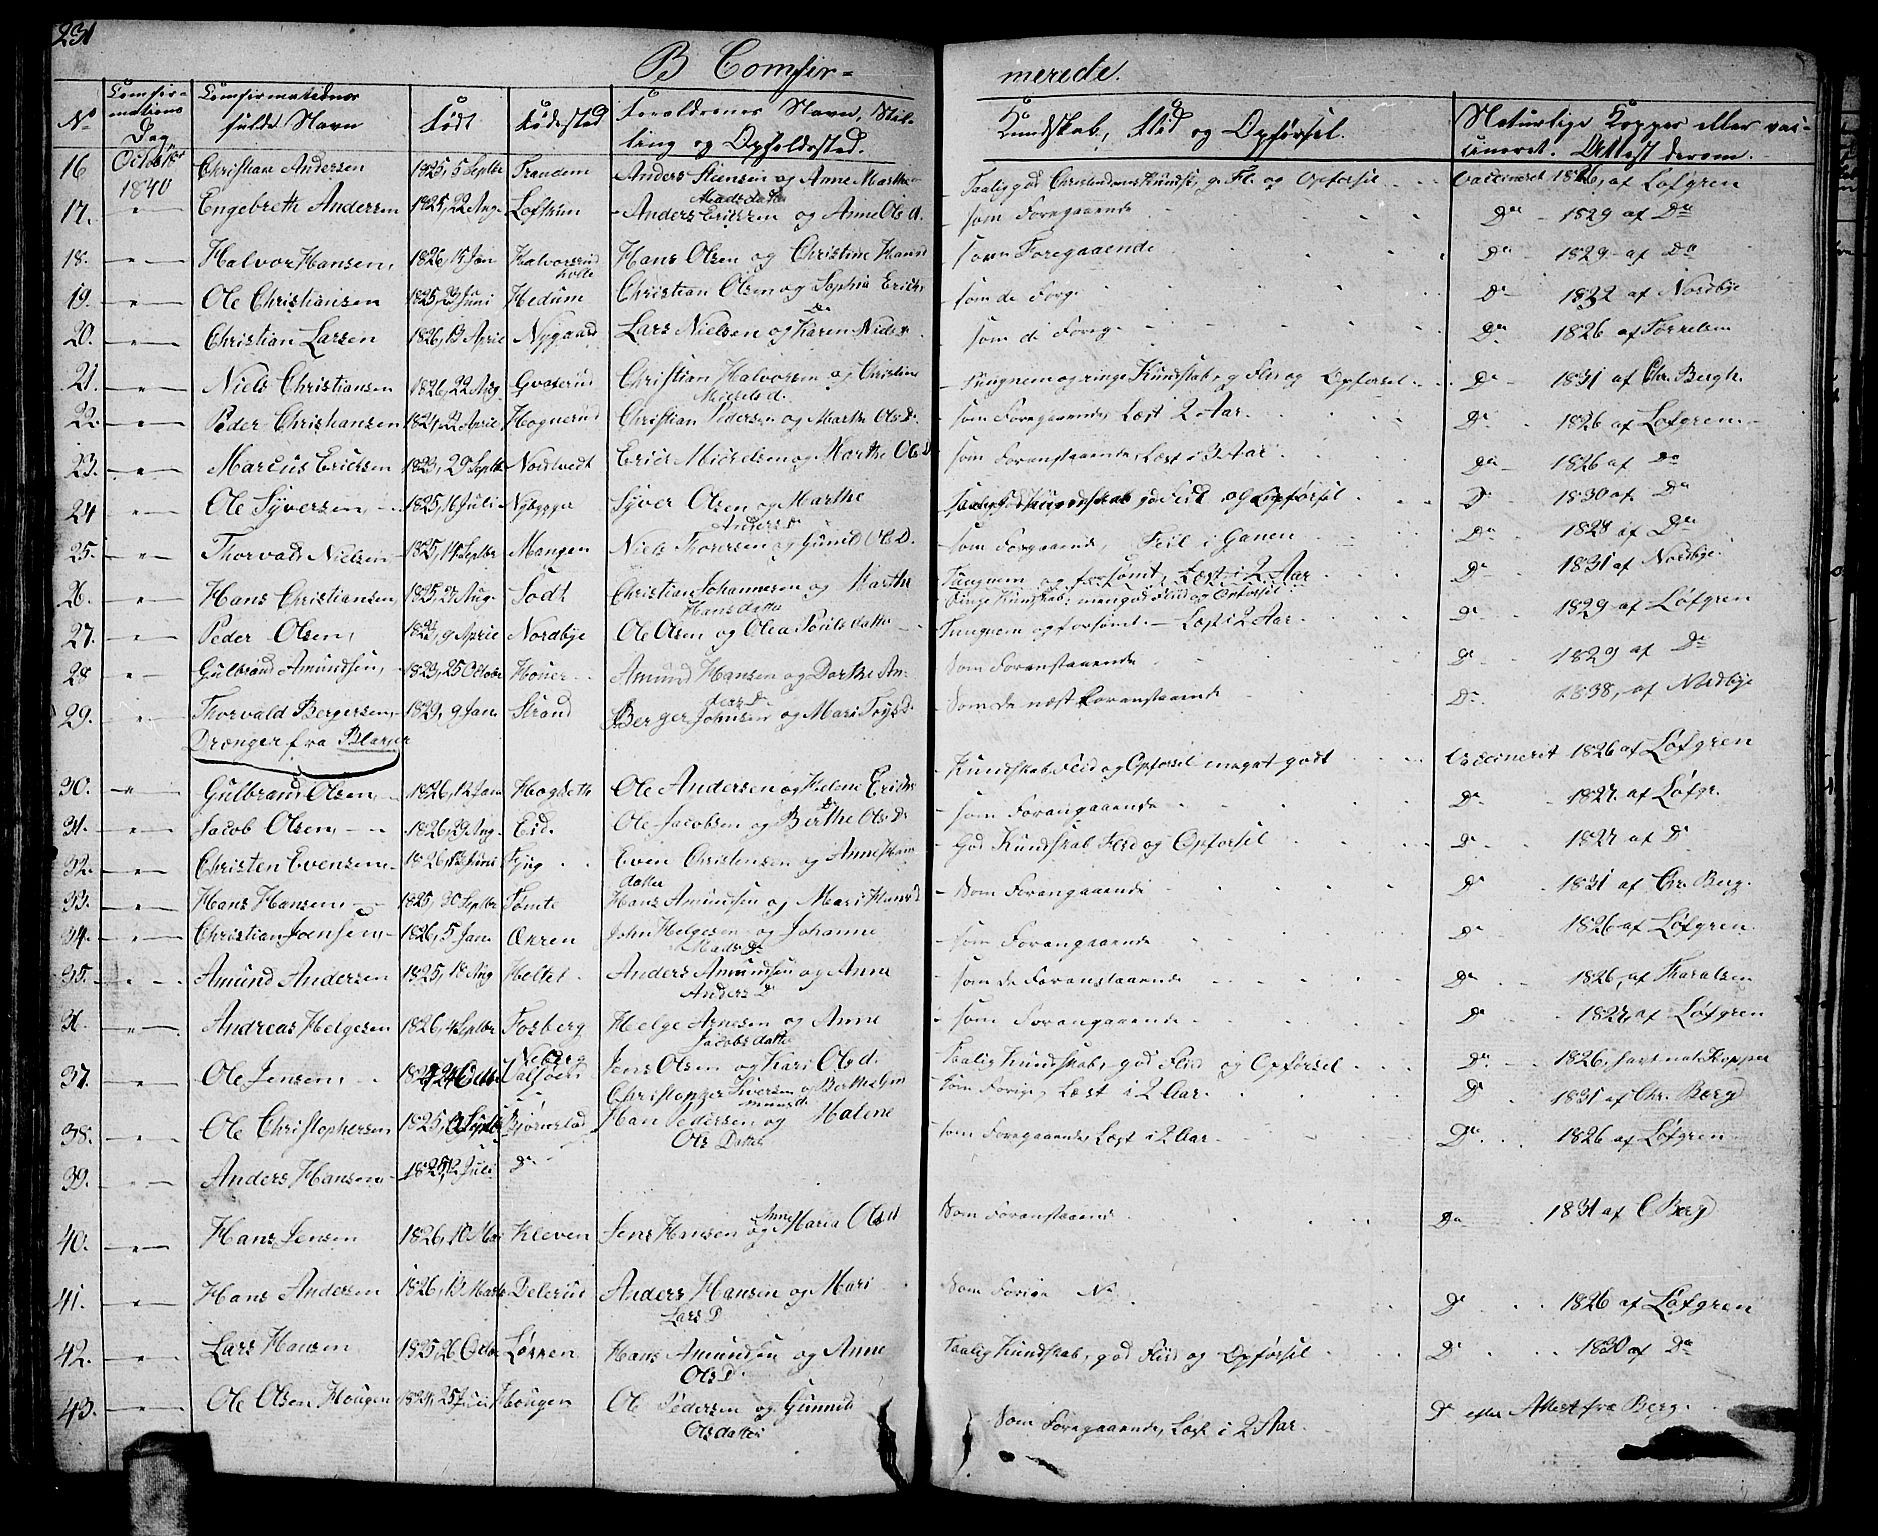 231
B Comfir= merede.
No Comfirmations Dag Comfirmatednes fulde Navn Født Fødested Forældrenes Navn, Stilling og Opholdssted. Kundskab, Flid og Opførsel. Naturlige Kopper eller vaccineret. Attest derom.
16 October 1840 Christian Andersen 1825, 5 Septbr Trandem Anders Steensen og Anne Marthe Madsdatter Taalig god Christendoms Kundsk, g. Fl. og Opførsel Vaccineret 1826, af Løfgren
17. " Engebreth Andersen 1825, 22 Aug. Løfthun Anders Ericksen og Anne Ols d. som Foregaaende Do 1829 af Do
18. " Halvor Hansen, 1826, 15 Jan Halvorsrud Hans Olsen og Christine Hansd som Foregaaende Do 1829 af Do
19. " Ole Christiansen 1825, 23 Juni Hedum Christian Olsen og Sophia Erichs D som de Forg. Do 1822 af Nordbye
20. " Christian Larsen 1826, 13 April Nygaard Lars Nielsen og Karen Neder som de Foreg. Do 1826 af
21. " Niels Christiansen 1826, 22 Aug Christian Halvorsen og Christine Michels d. Tungnem og ringe Kundskab, g Flid og Opførsel Do 1831 af Chr. Bergh.
22. " Peder Christiansen 1824, 22 April Hognerud Christian Pedersen og Marthe Ols D. som Foregaaende, Læst 2 Aar. Do 1826 af Løfgren
23. " Marcus Ericksen 1823, 29 Septbr Nordtvedt Erick Mickelsen og Marthe Ols D som Foranstaaende, Læst i 3 Aar Do 1826 af Do
24 " Ole Syversen, 1825, 16 Juli Nybygget Syver Olsen og Marthe Anders D Taalig God Kundskab god Flid og Opførsel Do 1830 af Do
25. " Thorvald Nielsen 1825, 14 Septbr Mangen Niels Thoresen og Gunild Ols D. som Forgaaende, Feil i Ganen Do 1828 af Do
26. " Hans Christiansen, 1825, 27 Aug. Sodt Christian Johannesen og Marthe Hansdatter Tungnem og forsømt, Læst i 2 Aar Ringe Kundskab; men god Flid og Opførsel Do 1831 af Nordbye.
27. " Peder Olsen, 9 April Nordbye Ole Olsen og Olea Poulsdatter Tungnem og forsømt. Læst i 2 Aar. Do 1829 af Løfgren
28 " Gulbrand Amundsen, 1823, 25 Octobr Houer Amund Hansen og Dorthe Anders D Som Foranstaaende Do 1829 af Do
29. " Thorvald Bergersen, 1829, 9 Jan. Strand Berger Johnsen og Mari Som de næst Foranstaaende Do 1838, af Nordbye
Drenger fra Blarker
30. " Gulbrand Olsen, 1826, 12 Jan Hogseth Ole Andersen og Helene Erichs D Kundskab, Flid og Opførsel meget godt Vaccineret 1826 af Løfgren
31. " Jacob Olsen, 1826, 29 Aug. Eid. Ole Jacobsen og Berthe Ols D som Forangaaende Do 1827. af Løfgr.
32. " Christen Evensen Even Christensen og Anne Hansdatter God Kundskab Flid og Opførsel Do 1827 af Do
33. " Hans Hansen 1825, 30 Septbr Tømte Hans Amundsen og Mari Hansd Som Forangaaende Do 1831 af Chr. Berg.
34. " Christian Joensen 1826, 5 Jan. Aeren John Helgesen og Johanne Mads D som Forangaaende Do 1826 af Løfgren.
35. " Amund Andersen 1825, 18 Aug Heltet Anders Amundsen og Anne Anders D som de Foranstaaende Do 1826, af Tharalsen
36. " Andreas Helgesen 1826, 4 Septbr Fosberg Helge Arnesen og Anne Jacobsdatter som Forangaaende Do 1827, af Løfgren
37. " Ole Jensen, Jens Olsen og Kari Ols d. Taalig Kundskab, god Flid og Opførsel Do 1826, havt nat Kopper
38. " Ole Christophersen 1825, Septbr Bjørnstad Christopher Siversen og Berthe Amunds d. som Forrige, Læst i 2 Aar. Do 1831 af Chr. Berg
39. " Anders Hansen 1825, 12 Juli Do Hans Pedersen og Malene Ols Datter som Foregaaende, Læst i 2 Aar. Do 1826 af Løfgren
40. " Hans Jensen 1826, 10 Mai Kleven Jens Hansen og Anne Maria Olsd Som Foranstaaende Do 1831 af C Berg
41. " Hans Andersen 1826, 13 Marts Delerud Anders Hansen og Mari Lars D Som Forrige No Do 1826 af Løfgren
42. " Lars Hansen 1825 26 Octbr Lørren Hans Amundsen og Anne Ols D. Taalig Kundskab, god Flid og Opførsel Do 1830 af Do
43. " Ole Olsen Hougen 1824, 25 Juli Hougen Ole Pedersen og Gunnild Olsdatter Som Foregaaende, Læst i 2 Aar. Do efter Attest fra Berg.